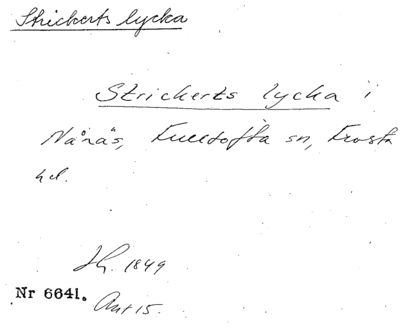 Strickerts lycka
Strickerts lycka i
Nånås, Fulltofta sn, Frosta
hd.
1849
Nr 6641.
Ant 15.